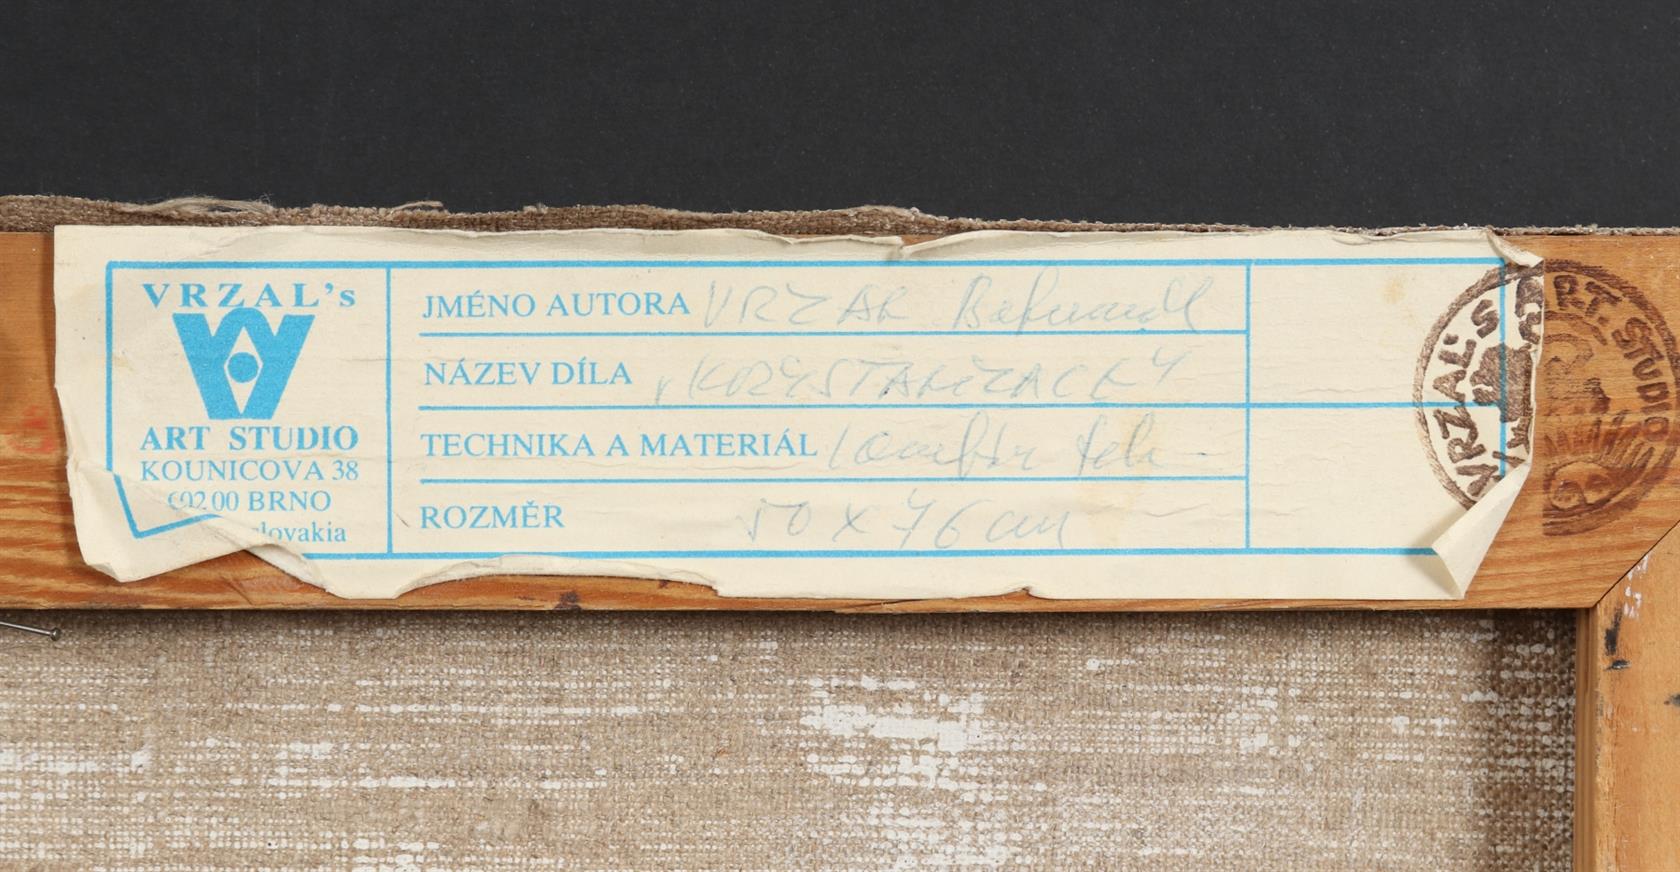 VRZAL's
ART STUDIO
KOUNICOVA 38
602 00 BRNO
slovakia
JMÉNO AUTORA VRZAL Bohumil
NÁZEV DÍLA
TECHNIKA A MATERIÁL
ROZMĚR 50 x 76 cm
VRZAL'S ART. STUDIO